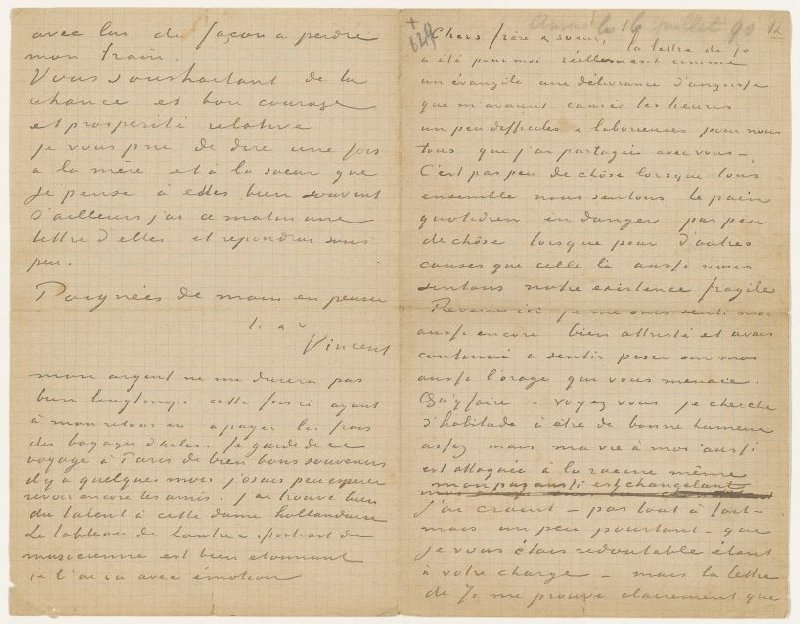 avec lui de façon à perdre
mon train.
Vous souhaitant de la
chance et bon courage
et prospérité relative
je vous prie de dire une fois
à la mère et à la soeur que
je pense à elles bien souvent
d'ailleurs j'ai ce matin une
lettre d'elles et repondrai sous
peu.
Poignées de main en pensée
t. à v.
Vincent
mon argent ne me durera pas
bien longtemps cette fois ci ayant
à mon retour eu à payer les frais
des bagages d'arles. Je garde de ce
voyage à Paris de bien bons souvenirs
il y a quelques mois j'osais peu espérer
revoir encore les amis. J'ai trouvé bien
du talent à cette dame hollandaise
Le tableau de Lautrec portrait de
musicienne est bien étonnant
je l'ai vu avec émotion
629
Chers frère & soeur, la lettre de Jo
a été pour moi réellement comme
un évangile une délivrance d'angoisse
que m'avaient causée les heures
un peu difficiles & laborieuses pour nous
tous que j'ai partagées avec vous –
C'est pas peu de chôse lorsque tous
ensemble nous sentons le pain
quotidien en danger pas peu
de chôse lorsque pour d'autres
causes que celle là aussi nous
sentons notre existence fragile
Revenu ici je me suis senti moi
aussi encore bien attristé et avais
continué à sentir peser sur moi
aussi l'orage qui vous menace.
Qu'y faire – voyez vous je cherche
d'habitude à être de bonne humeur
assez mais ma vie à moi aussi
est attaquée à la racine même
mon pas aussi est chancelant
J'ai craint – pas tout à fait –
mais un peu pourtant – que
je vous étais redoutable étant
à votre charge – mais la lettre
de Jo me prouve clairement que